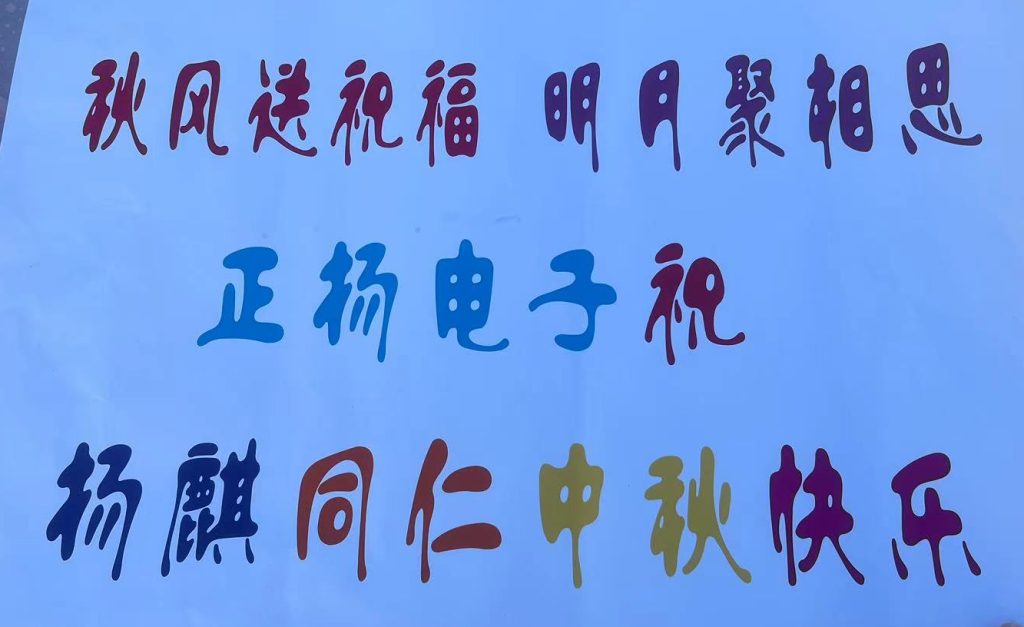 秋风送祝福 明月聚相思
正扬电子祝
扬麒同仁中秋快乐